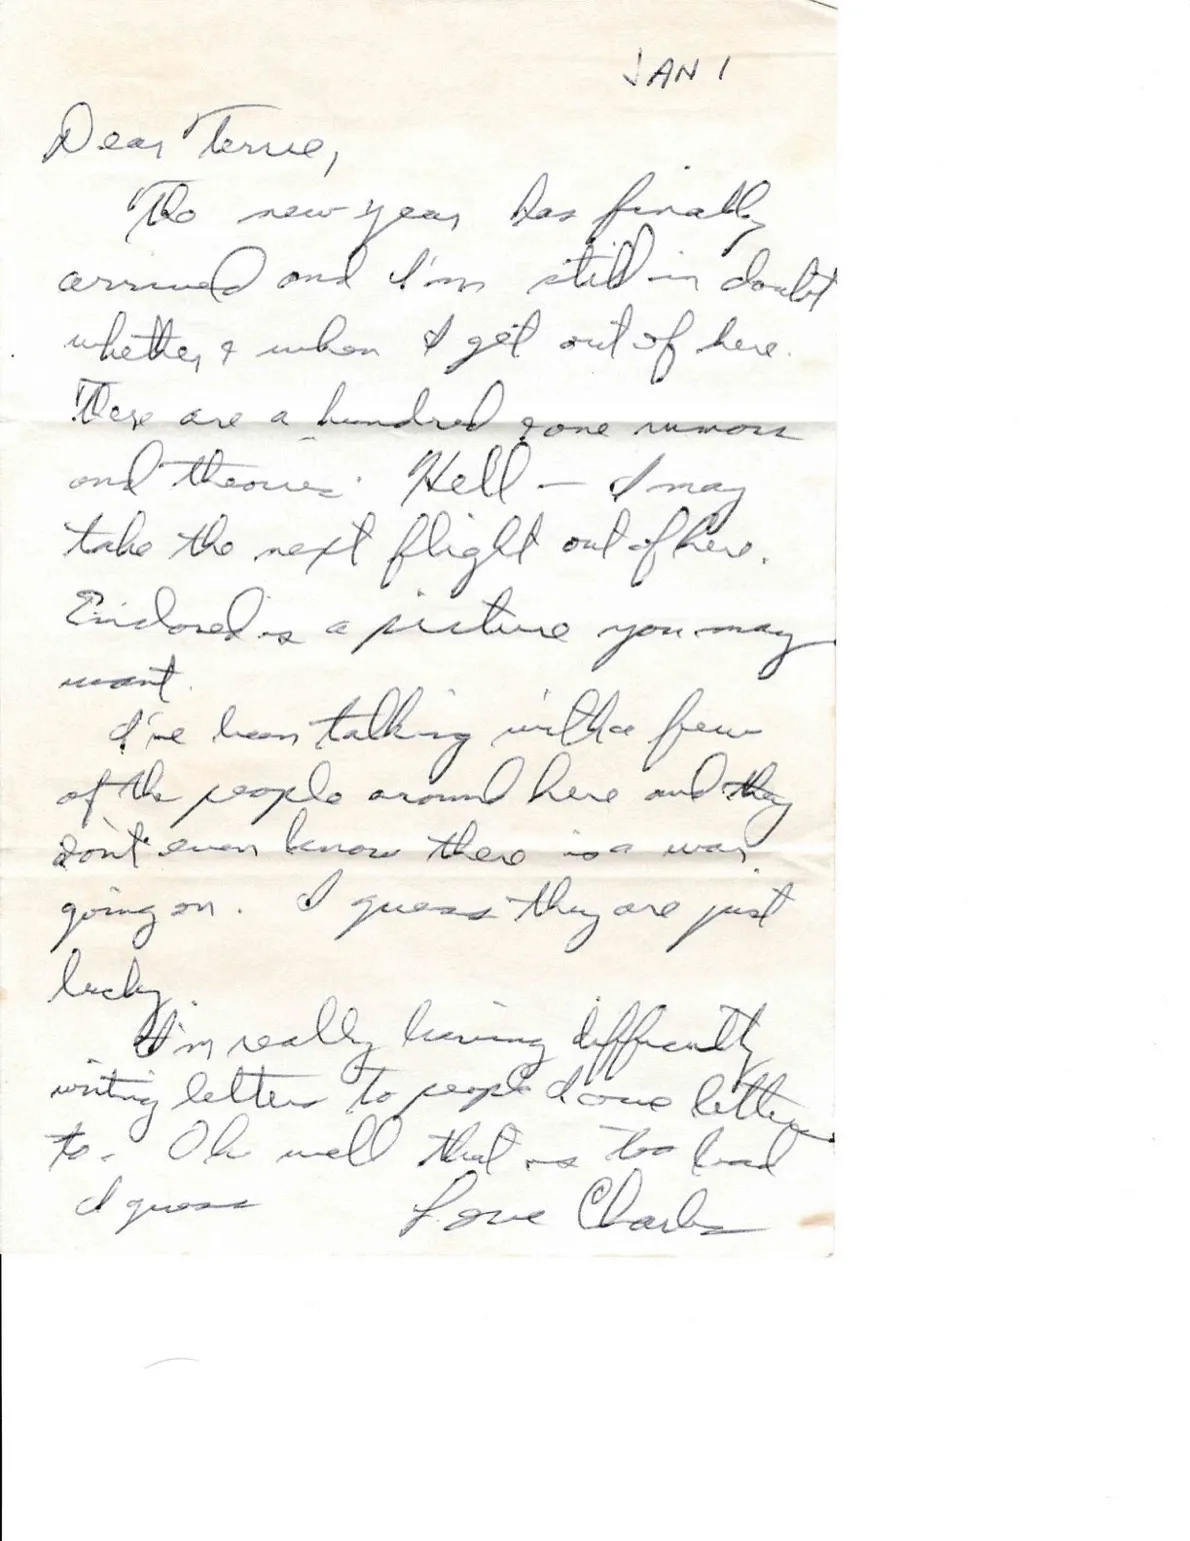 JAN 1
Dear Terrie,
The new year has finally
arrived and I'm still in doubt
whether & when I get out of here.
There are a hundred & one rumors
and theories. Hell — I may
take the next flight out of here.
Enclosed is a picture you may
want.
I've been talking with a few
of the people around here and they
don't even know there is a war
going on. I guess they are just
lucky.
I'm really having difficulty
writing letters to people I owe letters
to. Oh well that is too bad
I guess Love Charles